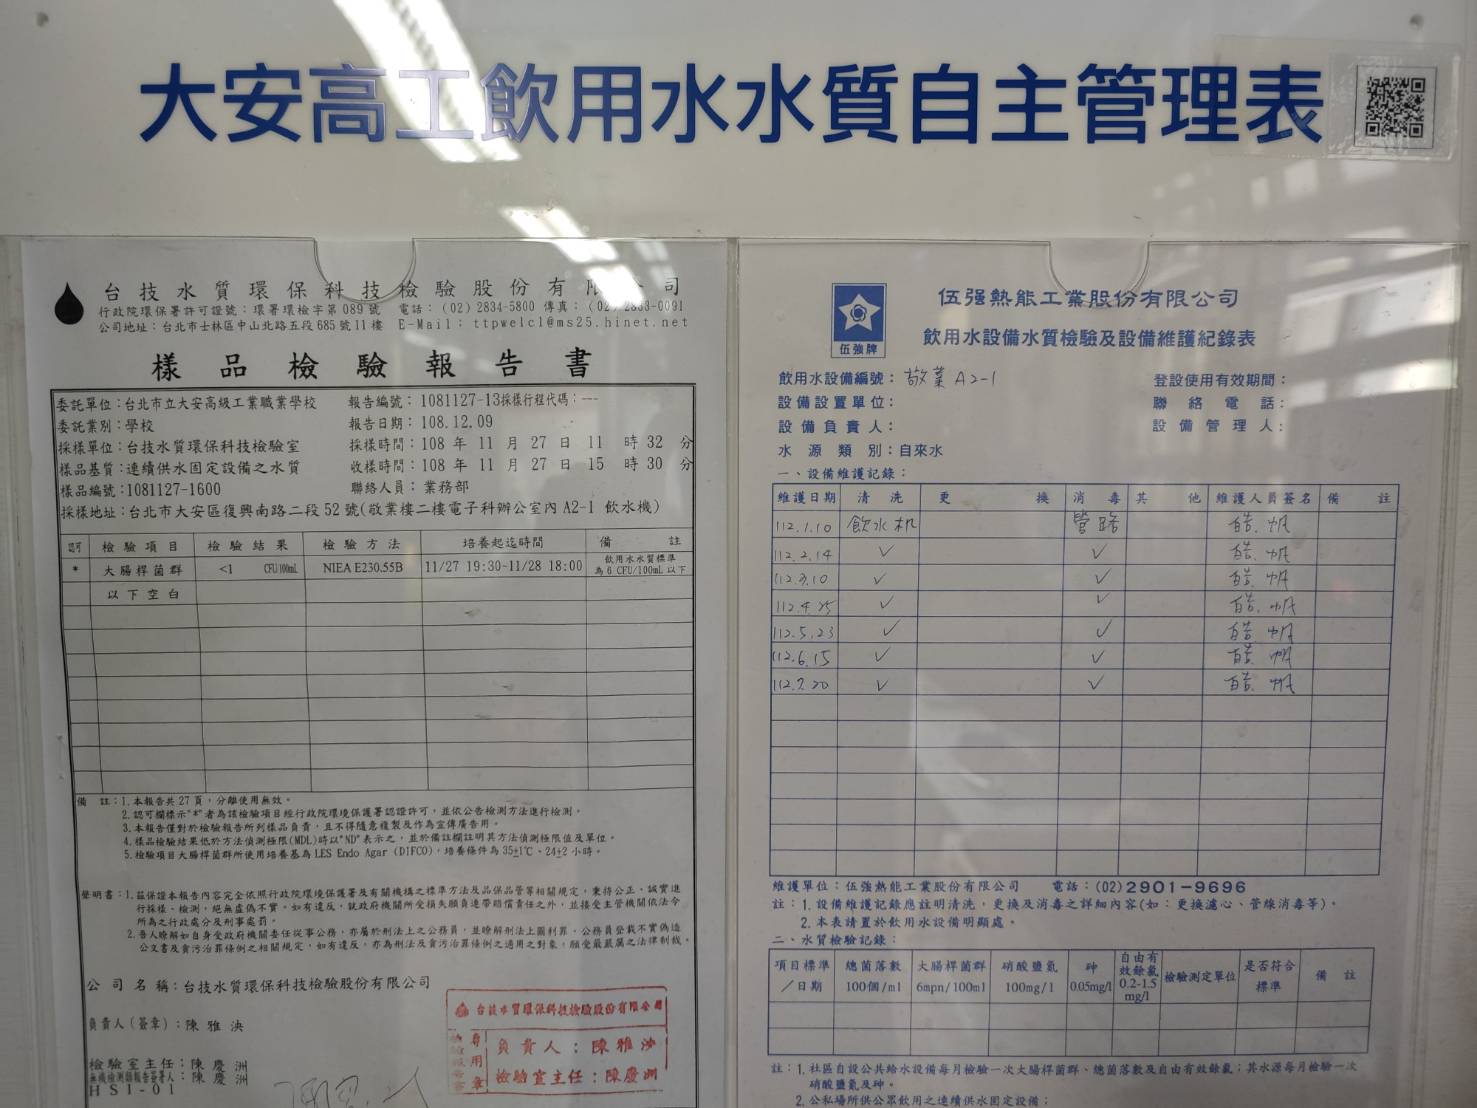 大安高工飲用水水質自主管理表
台技水質環保科技檢驗股份有限公司
行政院環保署許可證號：環署環檢字第089號 電話：(02)2834-5800 傳真：(02)2833-0091
公司地址：台北市士林區中山北路五段685號11樓 E-Mail：ttpwelcl@ms25.hinet.net
樣品檢驗報告書
委託單位：台北市立大安高級工業職業學校 報告編號：1081127-13採樣行程代碼：---
委託業別：學校 報告日期：108.12.09
採樣單位：台技水質環保科技檢驗室 採樣時間：108 年 11 月 27 日 11 時 32 分
樣品基質：連續供水固定設備之水質 收樣時間：108 年 11 月 27 日 15 時 30 分
樣品編號：1081127-1600 聯絡人員：業務部
採樣地址：台北市大安區復興南路二段52號(敬業樓二樓電子科辦公室內A2-1 飲水機)
認可 檢驗項目 檢驗結果 檢驗方法 培養起迄時間 備註
* 大腸桿菌群 <1 CFU/100mL NIEA E230.55B 11/27 19:30-11/28 18:00 飲用水水質標準
為6 CFU/100mL以下
以下空白
備 註：1.本報告共27頁，分離使用無效。
2.認可欄標示"*"者為該檢驗項目經行政院環境保護署認證許可，並依公告檢測方法進行檢測。
3.本報告僅對於檢驗報告所列樣品負責，且不得隨意複製及作為宣傳廣告用。
4.樣品檢驗結果低於方法偵測極限(MDL)時以"ND"表示之，並於備註欄註明其方法偵測極限值及單位。
5.檢驗項目大腸桿菌群所使用培養基為LES Endo Agar (DIFCO)，培養條件為35±1℃、24±2小時。
聲明書：1.茲保證本報告內容完全依照行政院環境保護署及有關機構之標準方法及品保品管等相關規定，秉持公正、誠實進
行採樣、檢測，絕無虛偽不實，如有違反，就政府機關所受損失願負連帶賠償責任之外，並接受主管機關依法令
所為之行政處分及刑事處罰。
2.吾人瞭解如自身受政府機關委任從事公務，亦屬於刑法上之公務員，並瞭解刑法上圖利罪、公務員登載不實偽造
公文書及貪污治罪條例之相關規定，如有違反，亦為刑法及貪污治罪條例之適用之對象，願受最嚴厲之法律制裁。
公司名稱：台技水質環保科技檢驗股份有限公司
負責人(簽章)：陳雅泱
檢驗室主任：陳慶洲
無機檢測類報告簽署人：陳慶洲
HSI-01
台技水質環保科技檢驗股份有限公司
負責人：陳雅泱
檢驗室主任：陳慶洲
伍強牌
伍强熱能工業股份有限公司
飲用水設備水質檢驗及設備維護紀錄表
飲用水設備編號：敬業A2-1 登設使用有效期間：
設備設置單位： 聯絡電話：
設備負責人： 設備管理人：
水源類別：自來水
一、設備維護記錄：
維護日期 清洗 更換 消毒 其他 維護人員簽名 備註
112.1.10 飲水机 管路 皓帆
112.2.14 ✓ ✓ 皓帆
112.3.10 ✓ ✓ 皓帆
112.4.25 ✓ ✓ 皓帆
112.5.23 ✓ ✓ 皓帆
112.6.15 ✓ ✓ 皓帆
112.7.20 ✓ ✓ 皓帆
維護單位：伍強熱能工業股份有限公司 電話：(02)2901-9696
註：1.設備維護記錄應註明清洗，更換及消毒之詳細內容(如：更換濾心、管線消毒等)。
2.本表請置於飲用水設備明顯處。
二、水質檢驗記錄：
項目標準／日期 總菌落數 100個/ml 大腸桿菌群 6mpn/100ml 硝酸鹽氮 100mg/l 砷 0.05mg/l 自由有效餘氯 0.2-1.5 mg/l 檢驗測定單位 是否符合標準 備註
註：1.社區自設公共給水設備每月檢驗一次大腸桿菌群、總菌落數及自由有效餘氯；其水源每月檢驗一次
硝酸鹽氮及砷。
2.公私場所供公眾飲用之連續供水固定設備：